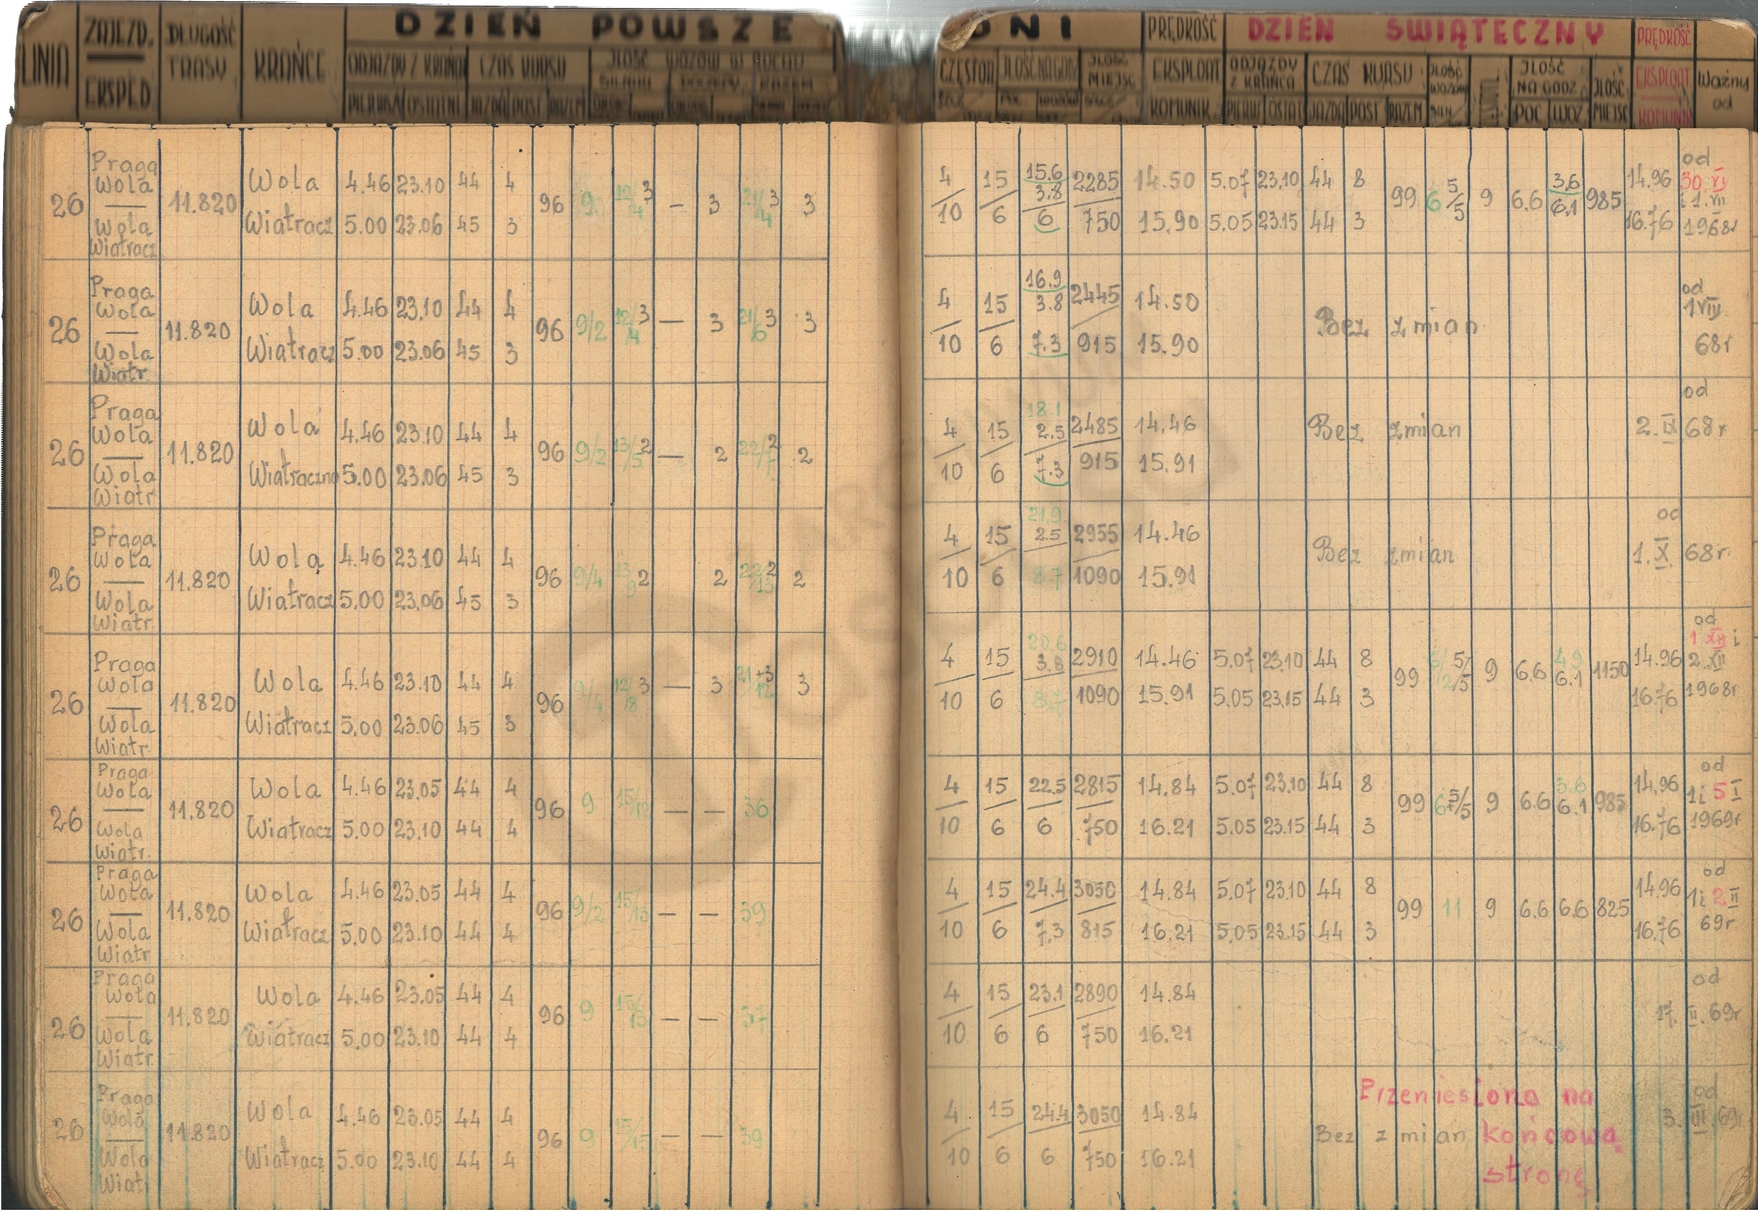 LINIA
ZAJEZD.
EKSPED.
DŁUGOŚĆ
TRASY
KRAŃCE
DZIEŃ POWSZE DNI
ODJAZDY Z KRAŃCA
PIERWSZY OSTATNI
CZAS KURSU
JAZDA POST RAZEM
ILOŚĆ WOZÓW W RUCHU
RAZEM
ILOŚĆ NA GODZ
ILOŚĆ
MIEJSC
PRĘDKOŚĆ
EKSPLOAT
KOMUNIK.
DZIEŃ ŚWIĄTECZNY
ODJAZDY
Z KRAŃCA
PIERW OSTAT
CZAS KURSU
JAZDA POST RAZEM
ILOŚĆ
NA GODZ
POC WOZ
ILOŚĆ
MIEJSC
PRĘDKOŚĆ
EKSPLOAT
KOMUNIK
Ważny
od
Praga od
Wola Wola 4.46 23.10 44 4 4 15 15.6 2285 14.50 5.07 23.10 44 8 14.96 30 VI
26 — 11.820 96 9 12/4 3 — 3 21/4 3 3 3.8 99 6 5/5 9 6.6 3.6 6.1 985 i 1.VII
Wola Wiatracz 5.00 23.06 45 3 10 6 6 750 15.90 5.05 23.15 44 3 16.76 1968r
Wiatracz
Praga 16.9 od
Wola Wola 4.46 23.10 44 4 4 15 3.8 2445 14.50 1 VIII
26 — 11.820 96 9/2 12/4 3 — 3 21/6 3 3 Bez zmian
Wola Wiatracz 5.00 23.06 45 3 10 6 7.3 915 15.90 68r
Wiatr.
Praga 18.1 od
Wola Wola 4.46 23.10 44 4 4 15 2.5 2485 14.46 Bez zmian 2.IX 68r
26 — 11.820 96 9/2 13/5 2 — 2 22/7 2 2
Wola Wiatraczna 5.00 23.06 45 3 10 6 7.3 915 15.91
Wiatr
Praga 21.9 od
Wola Wola 4.46 23.10 44 4 4 15 2.5 2955 14.46
26 — 11.820 96 9/4 13/9 2 2 22/13 2 2 Bez zmian 1.X. 68r.
Wola Wiatracz 5.00 23.06 45 3 10 6 8.7 1090 15.91
Wiatr
Praga 20.6 od
Wola Wola 4.46 23.10 44 4 4 15 3.8 2910 14.46 5.07 23.10 44 8 14.96 1 XII i
26 — 11.820 96 9/4 12/8 3 — 3 21/12 +3 3 99 6/2 5/5 9 6.6 4.9 6.1 1150 2.XII
Wola Wiatracz 5.00 23.06 45 3 10 6 8.7 1090 15.91 5.05 23.15 44 3 16.76 1968r
Wiatr.
Praga od
Wola Wola 4.46 23.05 44 4 4 15 22.5 2815 14.84 5.07 23.10 44 8 14.96 1 i 5 I
26 — 11.820 96 9 15/12 — — 36 99 6 5/5 9 6.6 3.6 6.1 985
Wola Wiatracz 5.00 23.10 44 4 10 6 6 750 16.21 5.05 23.15 44 3 16.76 1969r
Wiatr.
Praga od
Wola Wola 4.46 23.05 44 4 4 15 24.4 3050 14.84 5.07 23.10 44 8 14.96 1 i 2 II
26 — 11.820 96 9/2 15/13 — — 39 99 11 9 6.6 6.6 825
Wola Wiatracz 5.00 23.10 44 4 10 6 7.3 815 16.21 5.05 23.15 44 3 16.76 69r
Wiatr
Praga od
Wola Wola 4.46 23.05 44 4 4 15 23.1 2890 14.84
26 — 11.820 96 9 15/13 — — 37 17. II. 69r
Wola Wiatracz 5.00 23.10 44 4 10 6 6 750 16.21
Wiatr
Praga Przeniesiono na od
Wola Wola 4.46 23.05 44 4 4 15 24.4 3050 14.84
26 — 11.820 96 9 15/15 — — 39 Bez zmian końcową 3.III.69r
Wola Wiatracz 5.00 23.10 44 4 10 6 6 750 16.21
Wiatr stronę